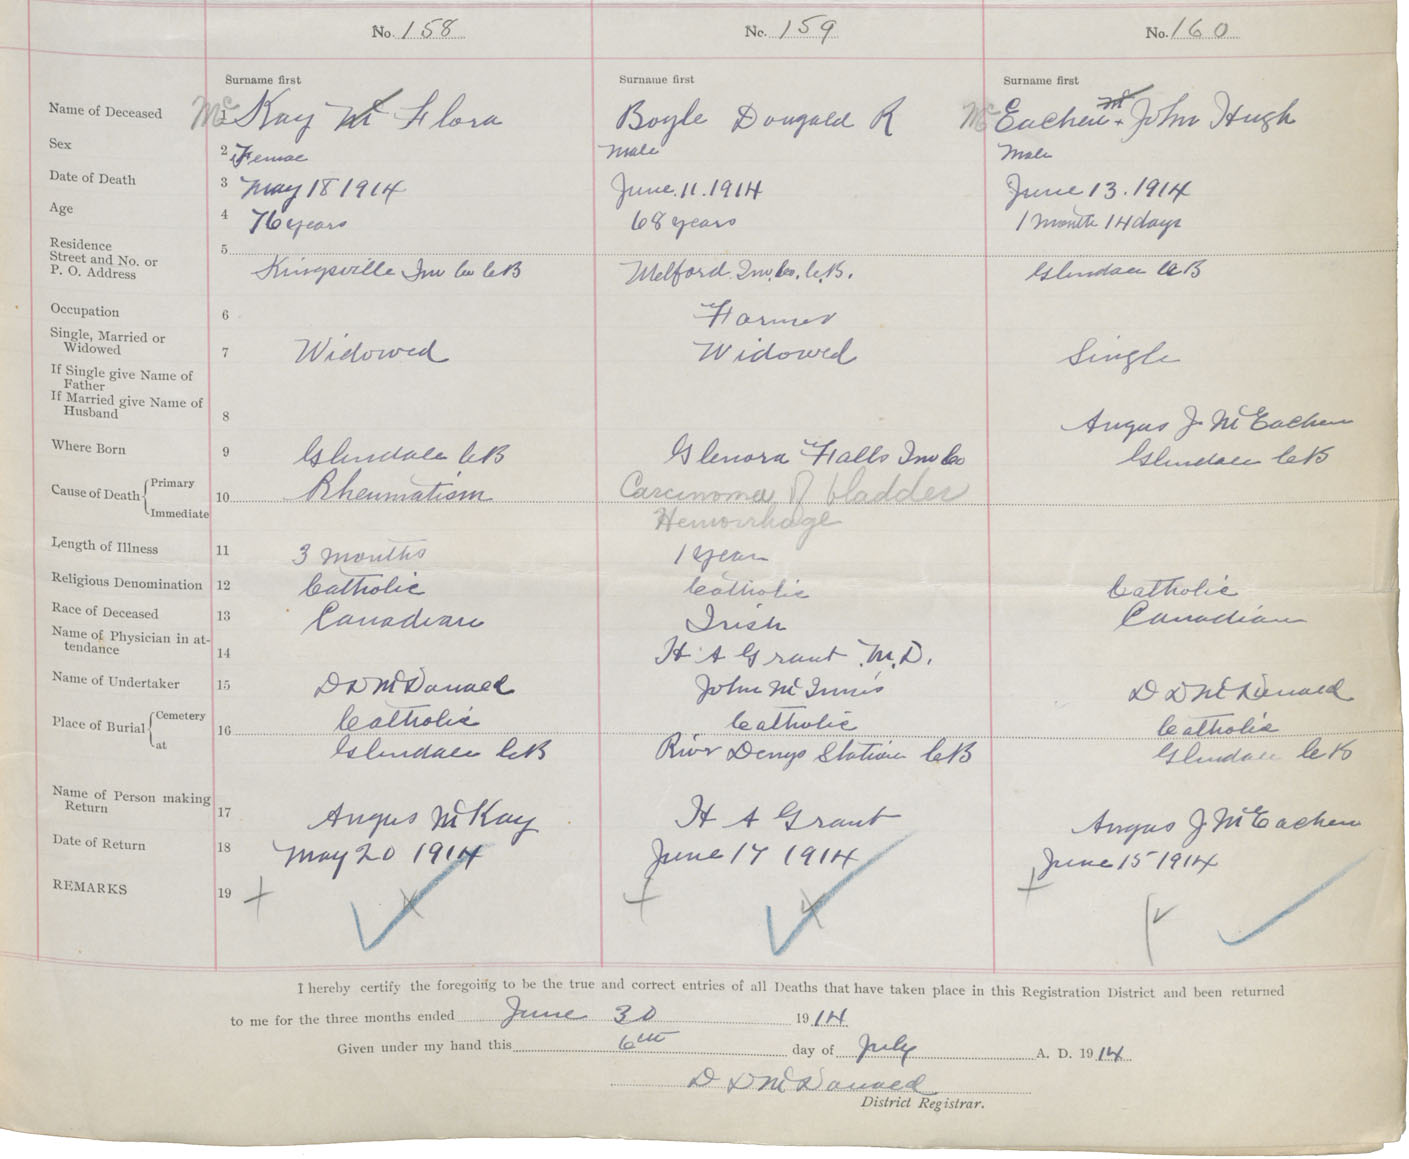 No. 158 No. 159 No. 160
Surname first Surname first Surname first
Name of Deceased 1 Mc Kay Mc Flora Boyle Dougald R Mc Eachen Mc John Hugh
Sex 2 Femae Male Male
Date of Death 3 May 18 1914 June. 11. 1914 June 13. 1914
Age 4 76 years 68 years 1 month 14 days
Residence 5
Street and No. or
P. O. Address Kingsville Inv Co C.B Melford Inv. Co. C.B. Glendale C B
Occupation 6 Farmer
Single, Married or
Widowed 7 Widowed Widowed Single
If Single give Name of
Father
If Married give Name of
Husband 8 Angus J McEachen
Where Born 9 Glendale C B Glenora Falls Inv Co Glendale C B
Cause of Death Primary 10 Rheumatism Carcinoma of bladder
Immediate Hemorrhage
Length of Illness 11 3 months 1 year
Religious Denomination 12 Catholic Catholic Catholic
Race of Deceased 13 Canadian Irish Canadian
Name of Physician in at-
tendance 14 H A Grant M.D.
Name of Undertaker 15 D D McDonald John McInnis D D McDonald
Place of Burial Cemetery 16 Catholic Catholic Catholic
at Glendale C B River Denys Station C B Glendale C B
Name of Person making
Return 17 Angus McKay H A Grant Angus J McEachen
Date of Return 18 May 20 1914 June 17 1914 June 15 1914
REMARKS 19
I hereby certify the foregoing to be the true and correct entries of all Deaths that have taken place in this Registration District and been returned
to me for the three months ended June 30 1914
Given under my hand this 6th day of July A. D. 1914
D D McDonald
District Registrar.